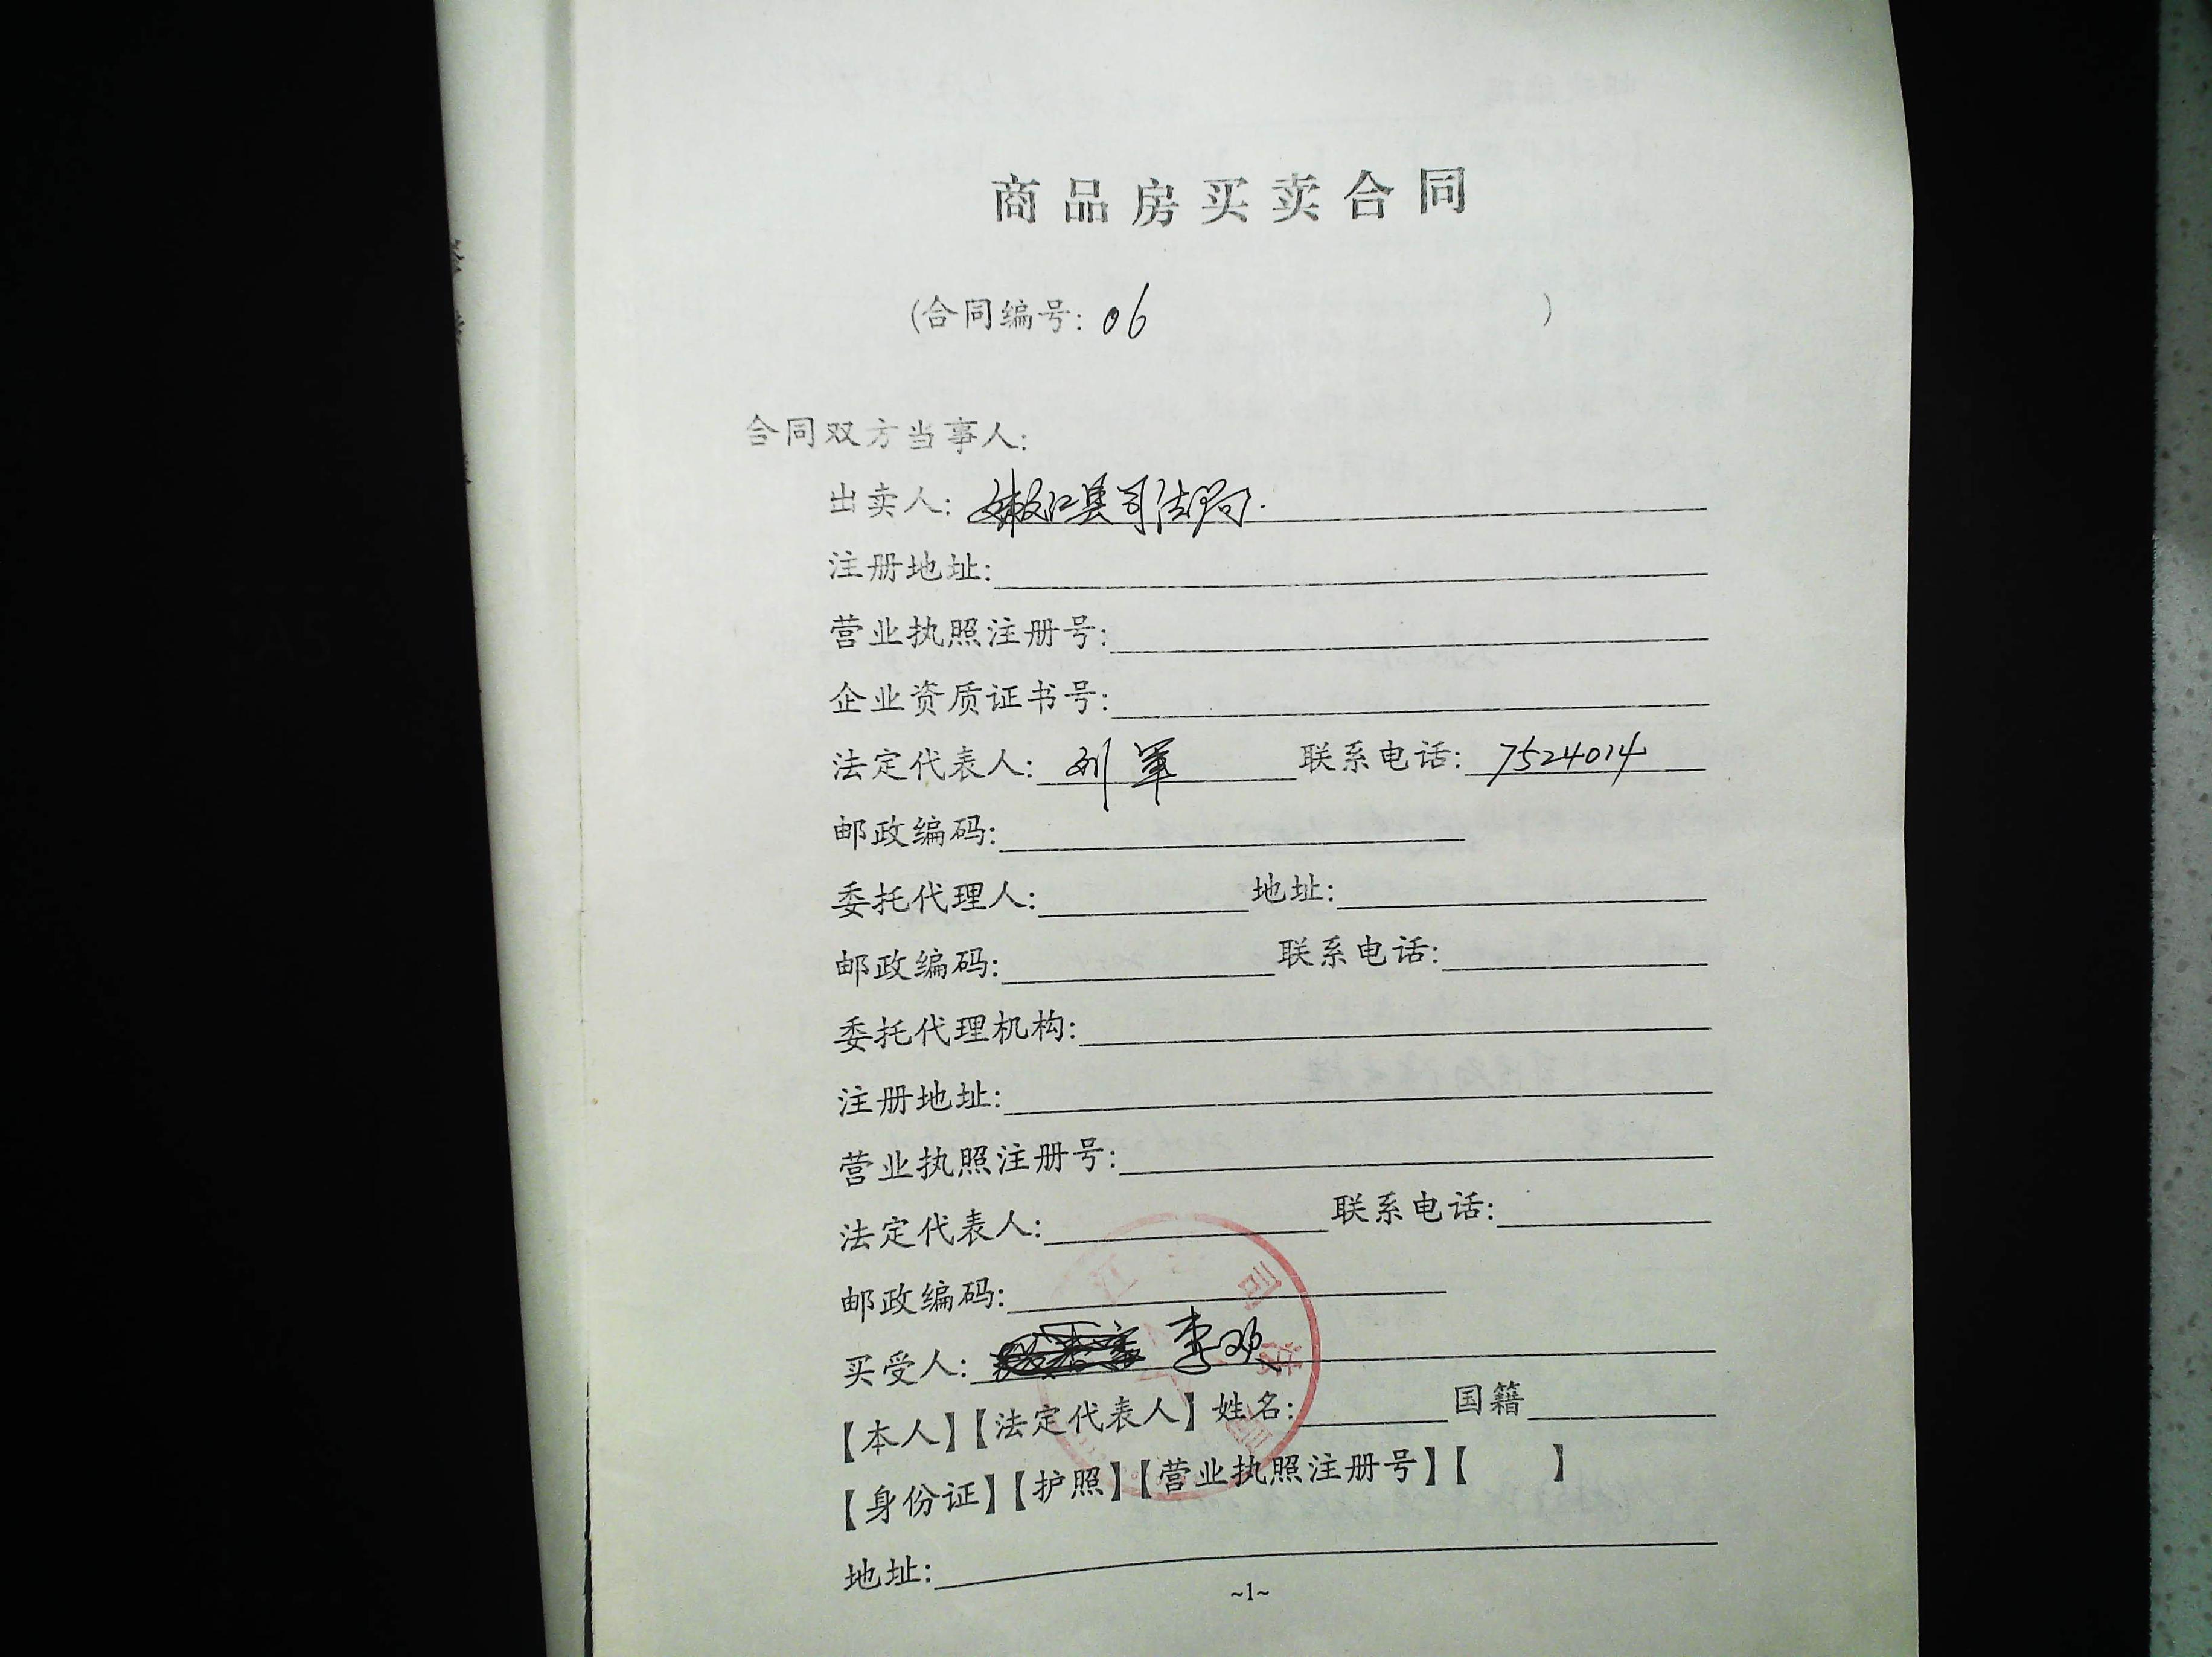 商品房买卖合同
(合同编号: 06 )
合同双方当事人:
出卖人: 嫩江县司法局.
注册地址:
营业执照注册号:
企业资质证书号:
法定代表人: 刘军 联系电话: 7524014
邮政编码:
委托代理人: 地址:
邮政编码: 联系电话:
委托代理机构:
注册地址:
营业执照注册号:
法定代表人: 联系电话:
邮政编码:
买受人: 李欢
【本人】【法定代表人】姓名: 国籍
【身份证】【护照】【营业执照注册号】【 】
地址:
~1~
司法局